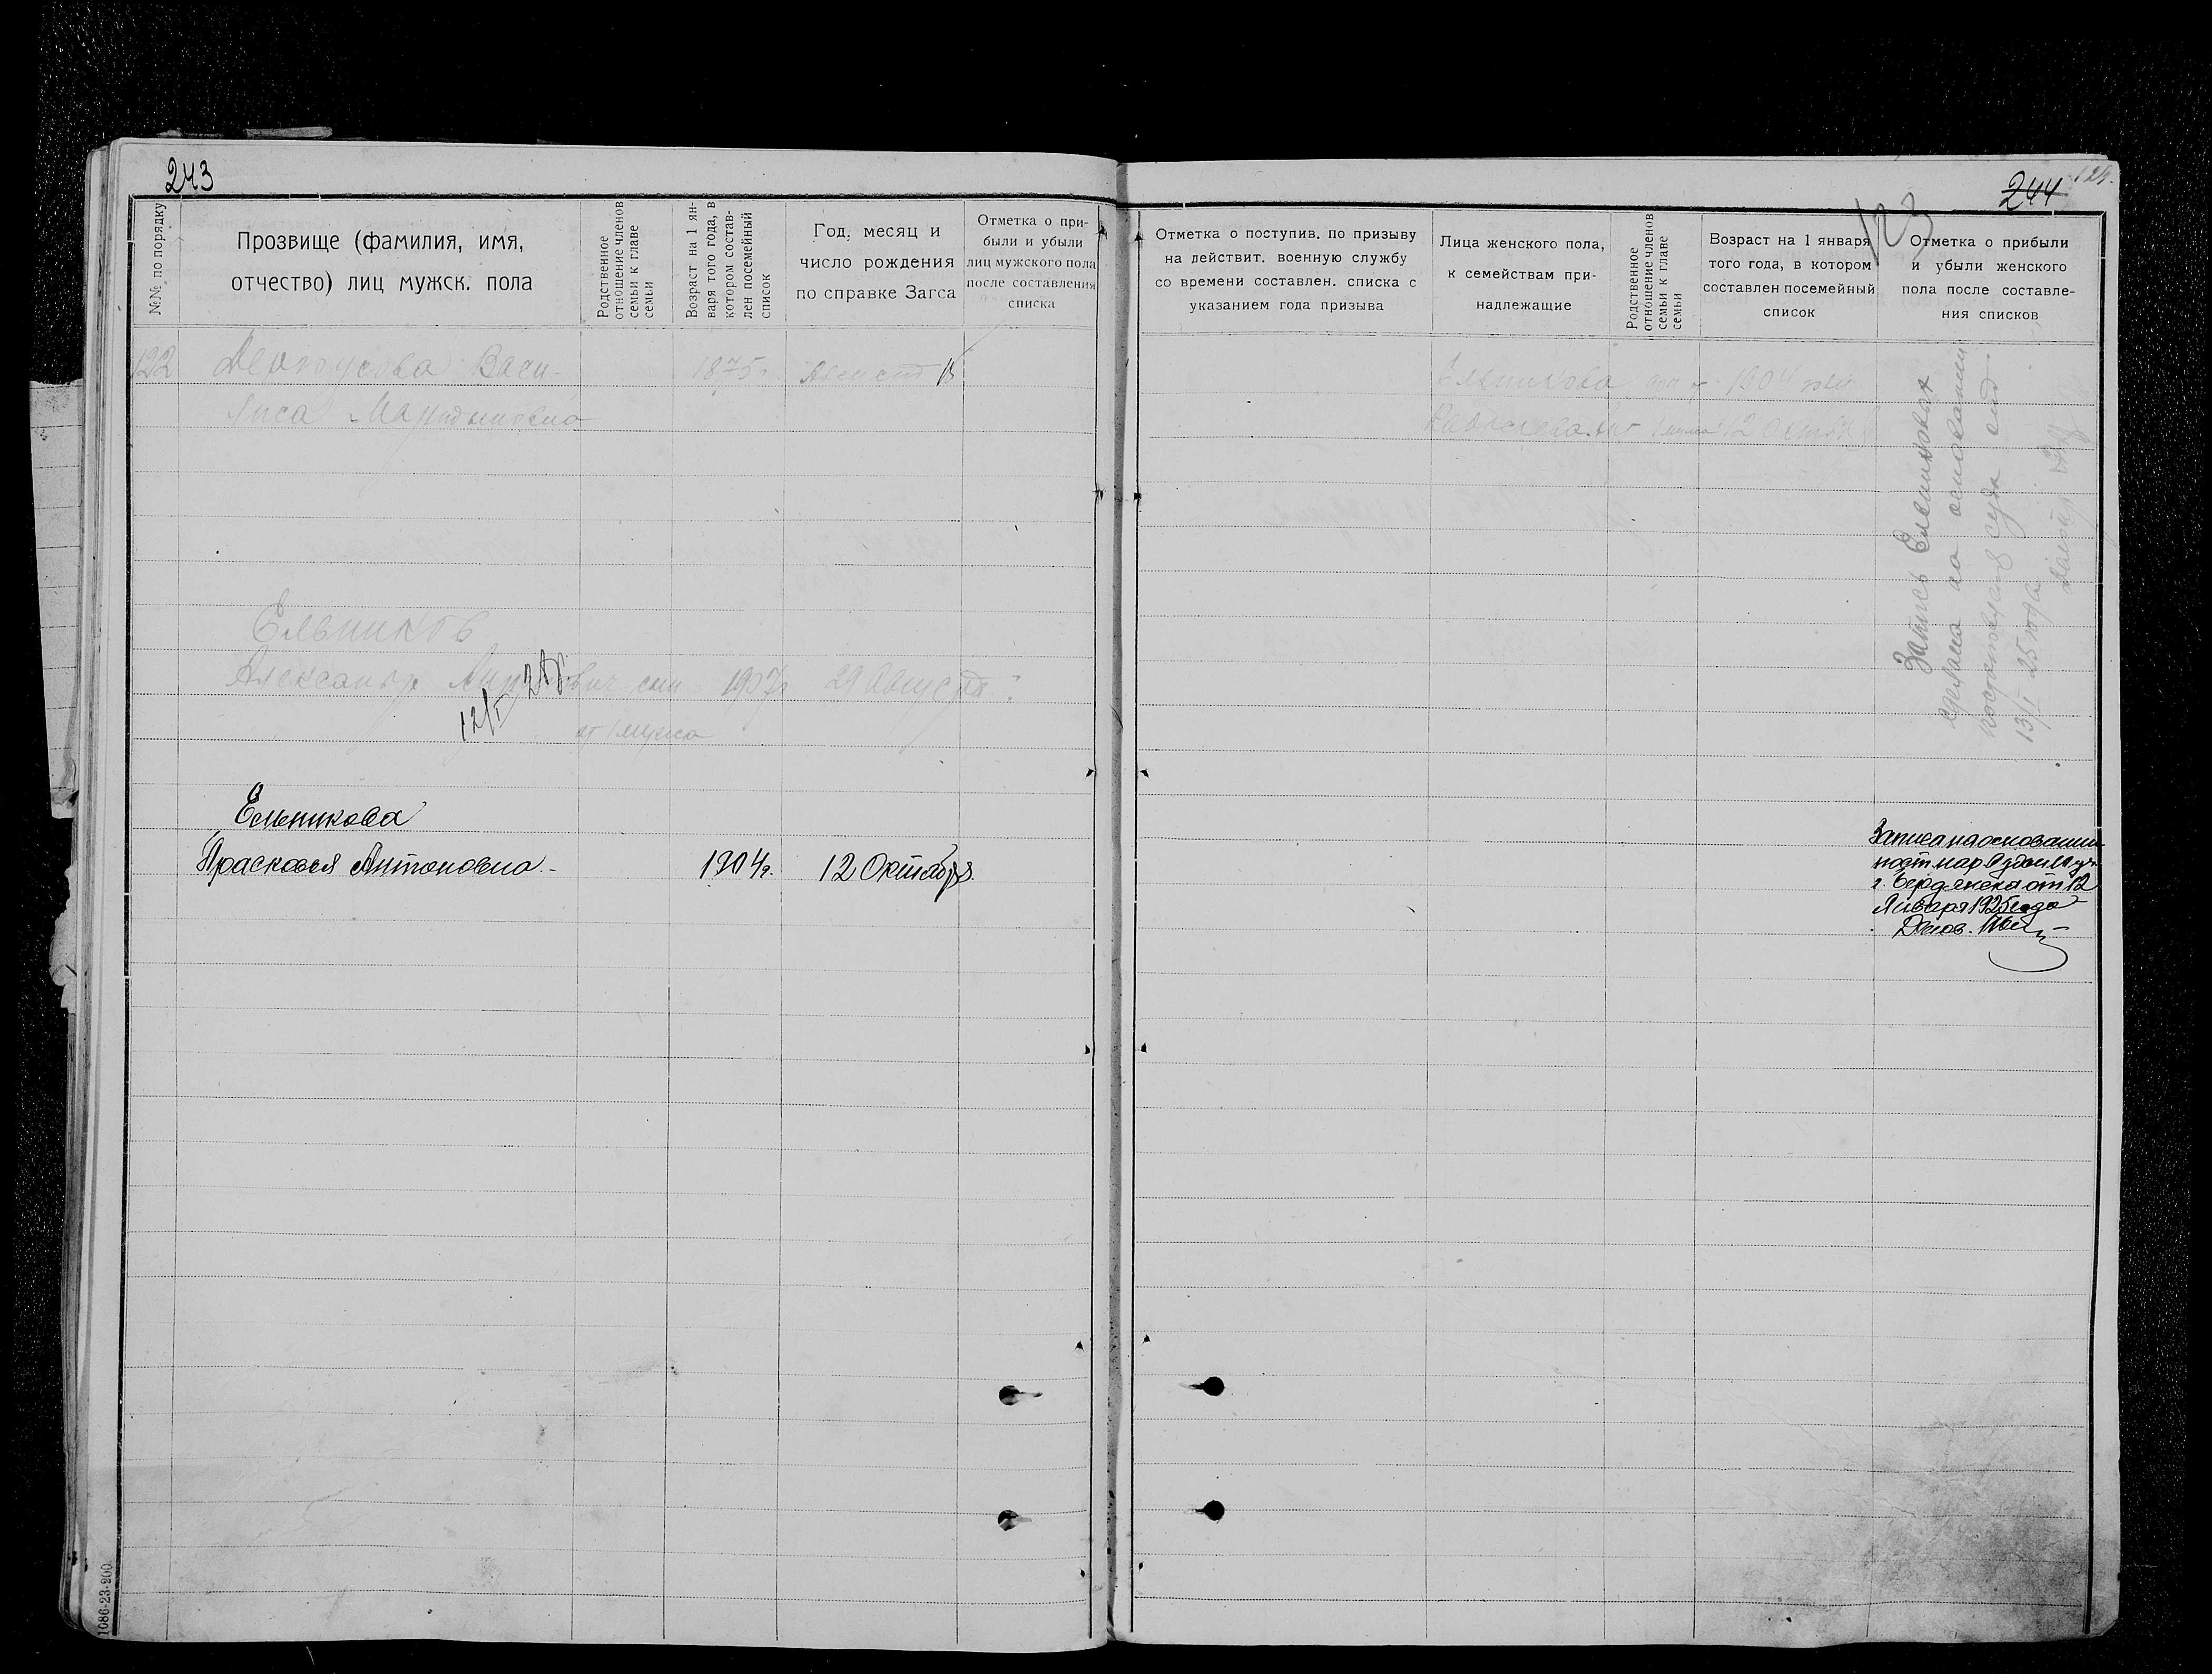 243
№№ по порядку
Прозвище (фамилия, имя,
отчество) лиц мужск. пола
Родственное
отношение членов
семьи к главе
семьи
Возраст на 1 ян-
варя того года, в
котором состав-
лен посемейный
список
Год, месяц и
число рождения
по справке Загса
Отметка о при-
были и убыли
лиц мужского пола
после составления
списка
122
Васи-
1875г.
Август 15
лиса
Ельников
Александр сын 1907г 29 Августа
12/I 25г.
от 1 мужа
Ельникова
Прасковья Антоновна.- 1904г. 12 Октября.
1086-23-200
124.
244
123
Отметка о поступив. по призыву
на действит. военную службу
со времени составлен. списка с
указанием года призыва
Лица женского пола,
к семействам при-
надлежащие
Родственное
отношение членов
семьи к главе
семьи
Возраст на 1 января
того года, в котором
составлен посемейный
список
Отметка о прибыли
и убыли женского
пола после составле-
ния списков
Ельникова 1904 года
12 Октяб
Запись Ельниковых
на основании
суда от
13/I 25 года
Записана на основании
пост. нар.
г. Бердянска от 12
Января 1925 года
Делов.